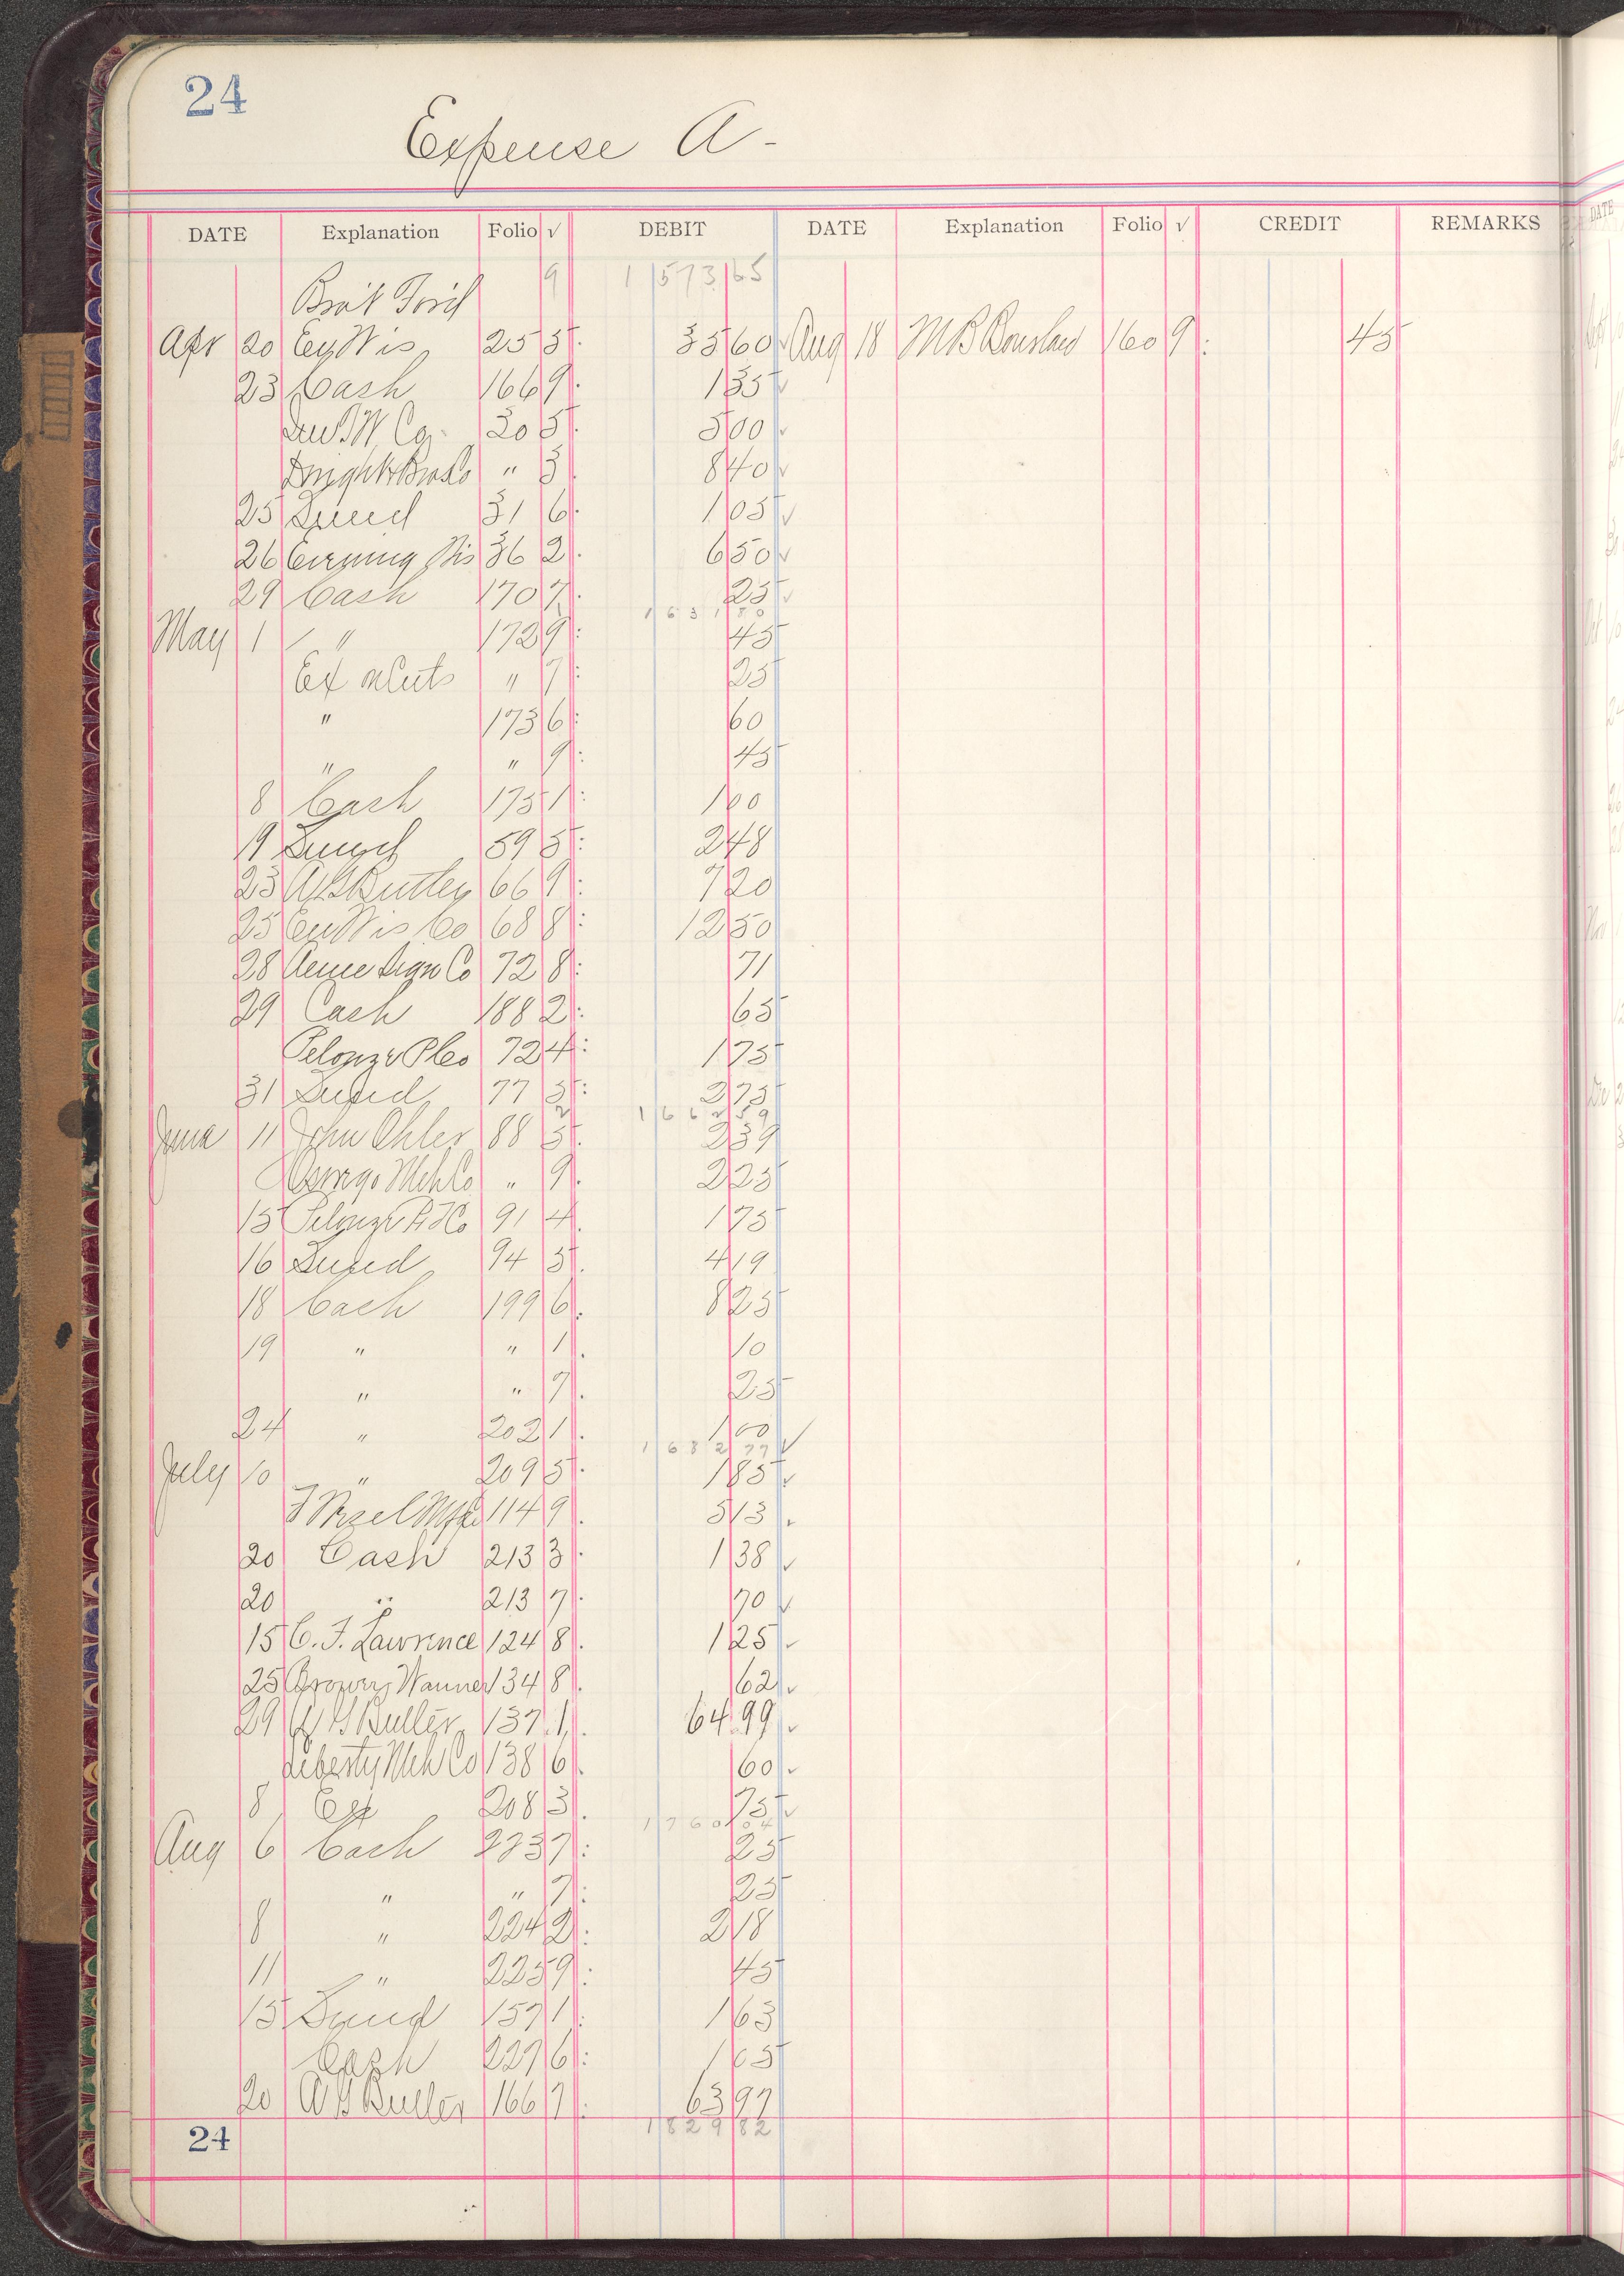 24
Expense A-
DATE Explanation Folio √ DEBIT DATE Explanation Folio √ CREDIT REMARKS
Bro't For'd 9 1 573 65
Apr 20 25 5 35 60 Aug 18 M B 160 9 45
23 Cash 166 9 1 35
Co 30 5 5 00
" 3 8 40
25 Sund 31 6 1 05
26 Evening Wis 36 2 6 50
29 Cash 170 7 25
1631 50
May 1 " 172 9 45
Ex on Cuts " 7 25
" 173 6 60
" " 9 45
8 Cash 175 1 1 00
19 Sund 59 5 2 48
23 A G Butler 66 9 7 20
25 Ev Wis Co 68 8 12 50
28 Acme Sign Co 72 8 71
29 Cash 188 2 65
Pelouze 72 4 1 75
31 Sund 77 5 2 75
1662 59
June 11 John Ohler 88 5 2 39
Oswego Mch Co " 9 2 25
15 Pelouze Co 91 4 1 75
16 Sund 94 5 4 19
18 Cash 199 6 8 25
19 " " 1 10
" " 7 25
24 " 202 1 1 00
1682 77
July 10 " 209 5 1 85
114 9 5 13
20 Cash 213 3 1 38
20 " 213 7 70
15 C. F. Lawrence 124 8 1 25
25 Wanner 134 8 62
29 A G Butler 137 1 64 99
Liberty Mch Co 138 6 60
8 Ex 208 3 75
1760 04
Aug 6 Cash 223 7 25
" " 7 25
8 " 224 2 2 18
11 " 225 9 45
15 Sund 157 1 1 63
Cash 227 6 1 05
20 A G Butler 166 7 63 97
1829 82
24